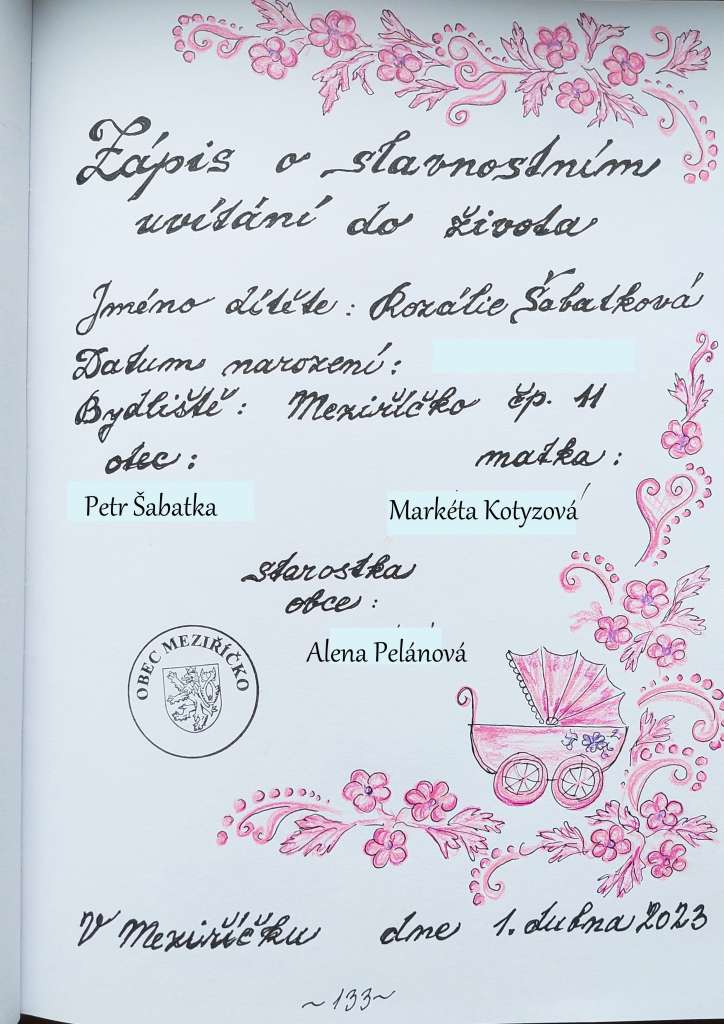 Zápis o slavnostním
uvítání do života
Jméno dítěte: Rozálie Šabatková
Datum narození:
Bydliště: Meziříčko čp. 11
otec: matka:
Petr Šabatka Markéta Kotyzová
starostka
obce:
Alena Pelánová
OBEC MEZIŘÍČKO
V Meziříčku dne 1. dubna 2023
~133~